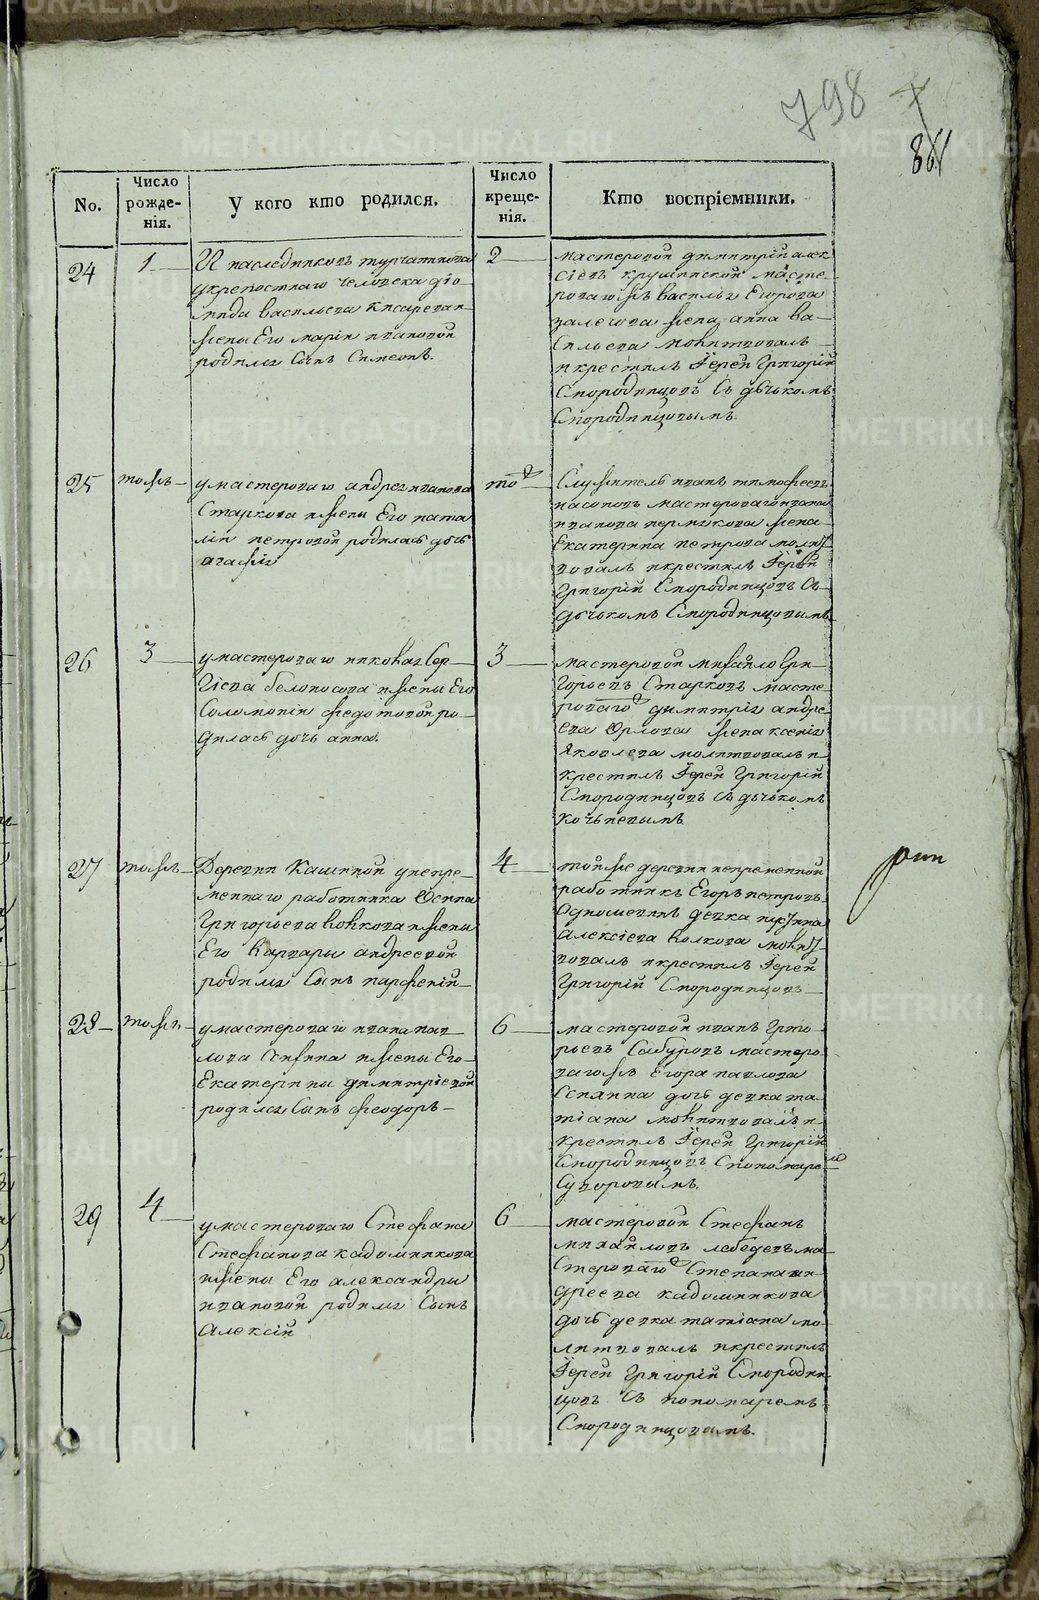 798
861
No.
Число рожде-нія.
У кого кто родился.
Число креще-нія.
Кто воспріемники.
24
1
И наследниковъ турчанинова
укрепостнаго человека діо-
мида васильева Писарева и
жены Его маріи ивановой
родился Сынъ Симеонъ.
2
мастеровой димитрій алек
сіевъ крушинской масте-
роваго жъ василья Егорова
жена анна ва-
сильева молитвовалъ
и крестилъ Іерей Григорій
Смородинцовъ Съ дьячкомъ
Смородинцовымъ.
25
тожъ
умастероваго андрея иванова
Старкова и жены Его ната
ліи петровой родилась дочь
агафія
тод
Служитель иванъ тимофеевъ
насоновъ мастероваго ивана
иванова пермякова жена
Екатерина петрова молит
вовалъ и крестилъ Іерей
Григорій Смородинцовъ Съ
дьячкомъ Смородинцовымъ
26
3
умастероваго николая Сер-
гіева белоносова и жены Его
Соломоніи федотовой ро-
дилась дочь анна.
3
мастеровой михайло Гри-
горьевъ Старковъ масте-
роваго димитрія андре-
ева Орлова жена ксенія
Яковлева молитвовалъ и
крестилъ Іерей Григорій
Смородинцовъ Съ дьячкомъ
Кочьневымъ
27
тожъ
Деревни Кашиной унепре-
меннаго работника Осипа
Григорьева волкова и жены
Его Варвары андреевой
родился Сынъ парфеній
4
тойже деревни непременной
работникъ Егоръ петровъ
девка
алексіева волкова молит
вовалъ и крестилъ Іерей
Григорій Смородинцовъ
28
тожъ
умастероваго ивана пав-
лова и жены Его
Екатерины димитріевой
родился Сынъ феодоръ
6
мастеровой иванъ Григо-
рьевъ Сабуровъ мастеро-
вагожъ Егора павлова
дочь девка та-
тіана молитвовалъ и
крестилъ Іерей Григорій
Смородинцовъ Спономаремъ
Суворовымъ.
29
4
умастероваго Стефана
Стефанова кадомникова
и жены Его александры
ивановой родился Сынъ
Алексій
6
мастеровой Стефанъ
михайловъ лебедевъ ма-
стероваго Степана ан-
дреева кадомникова
дочь девка татіана мо-
литвовалъ и крестилъ
Іерей Григорій Смородин
цовъ Съ пономаремъ
Смородинцовымъ.